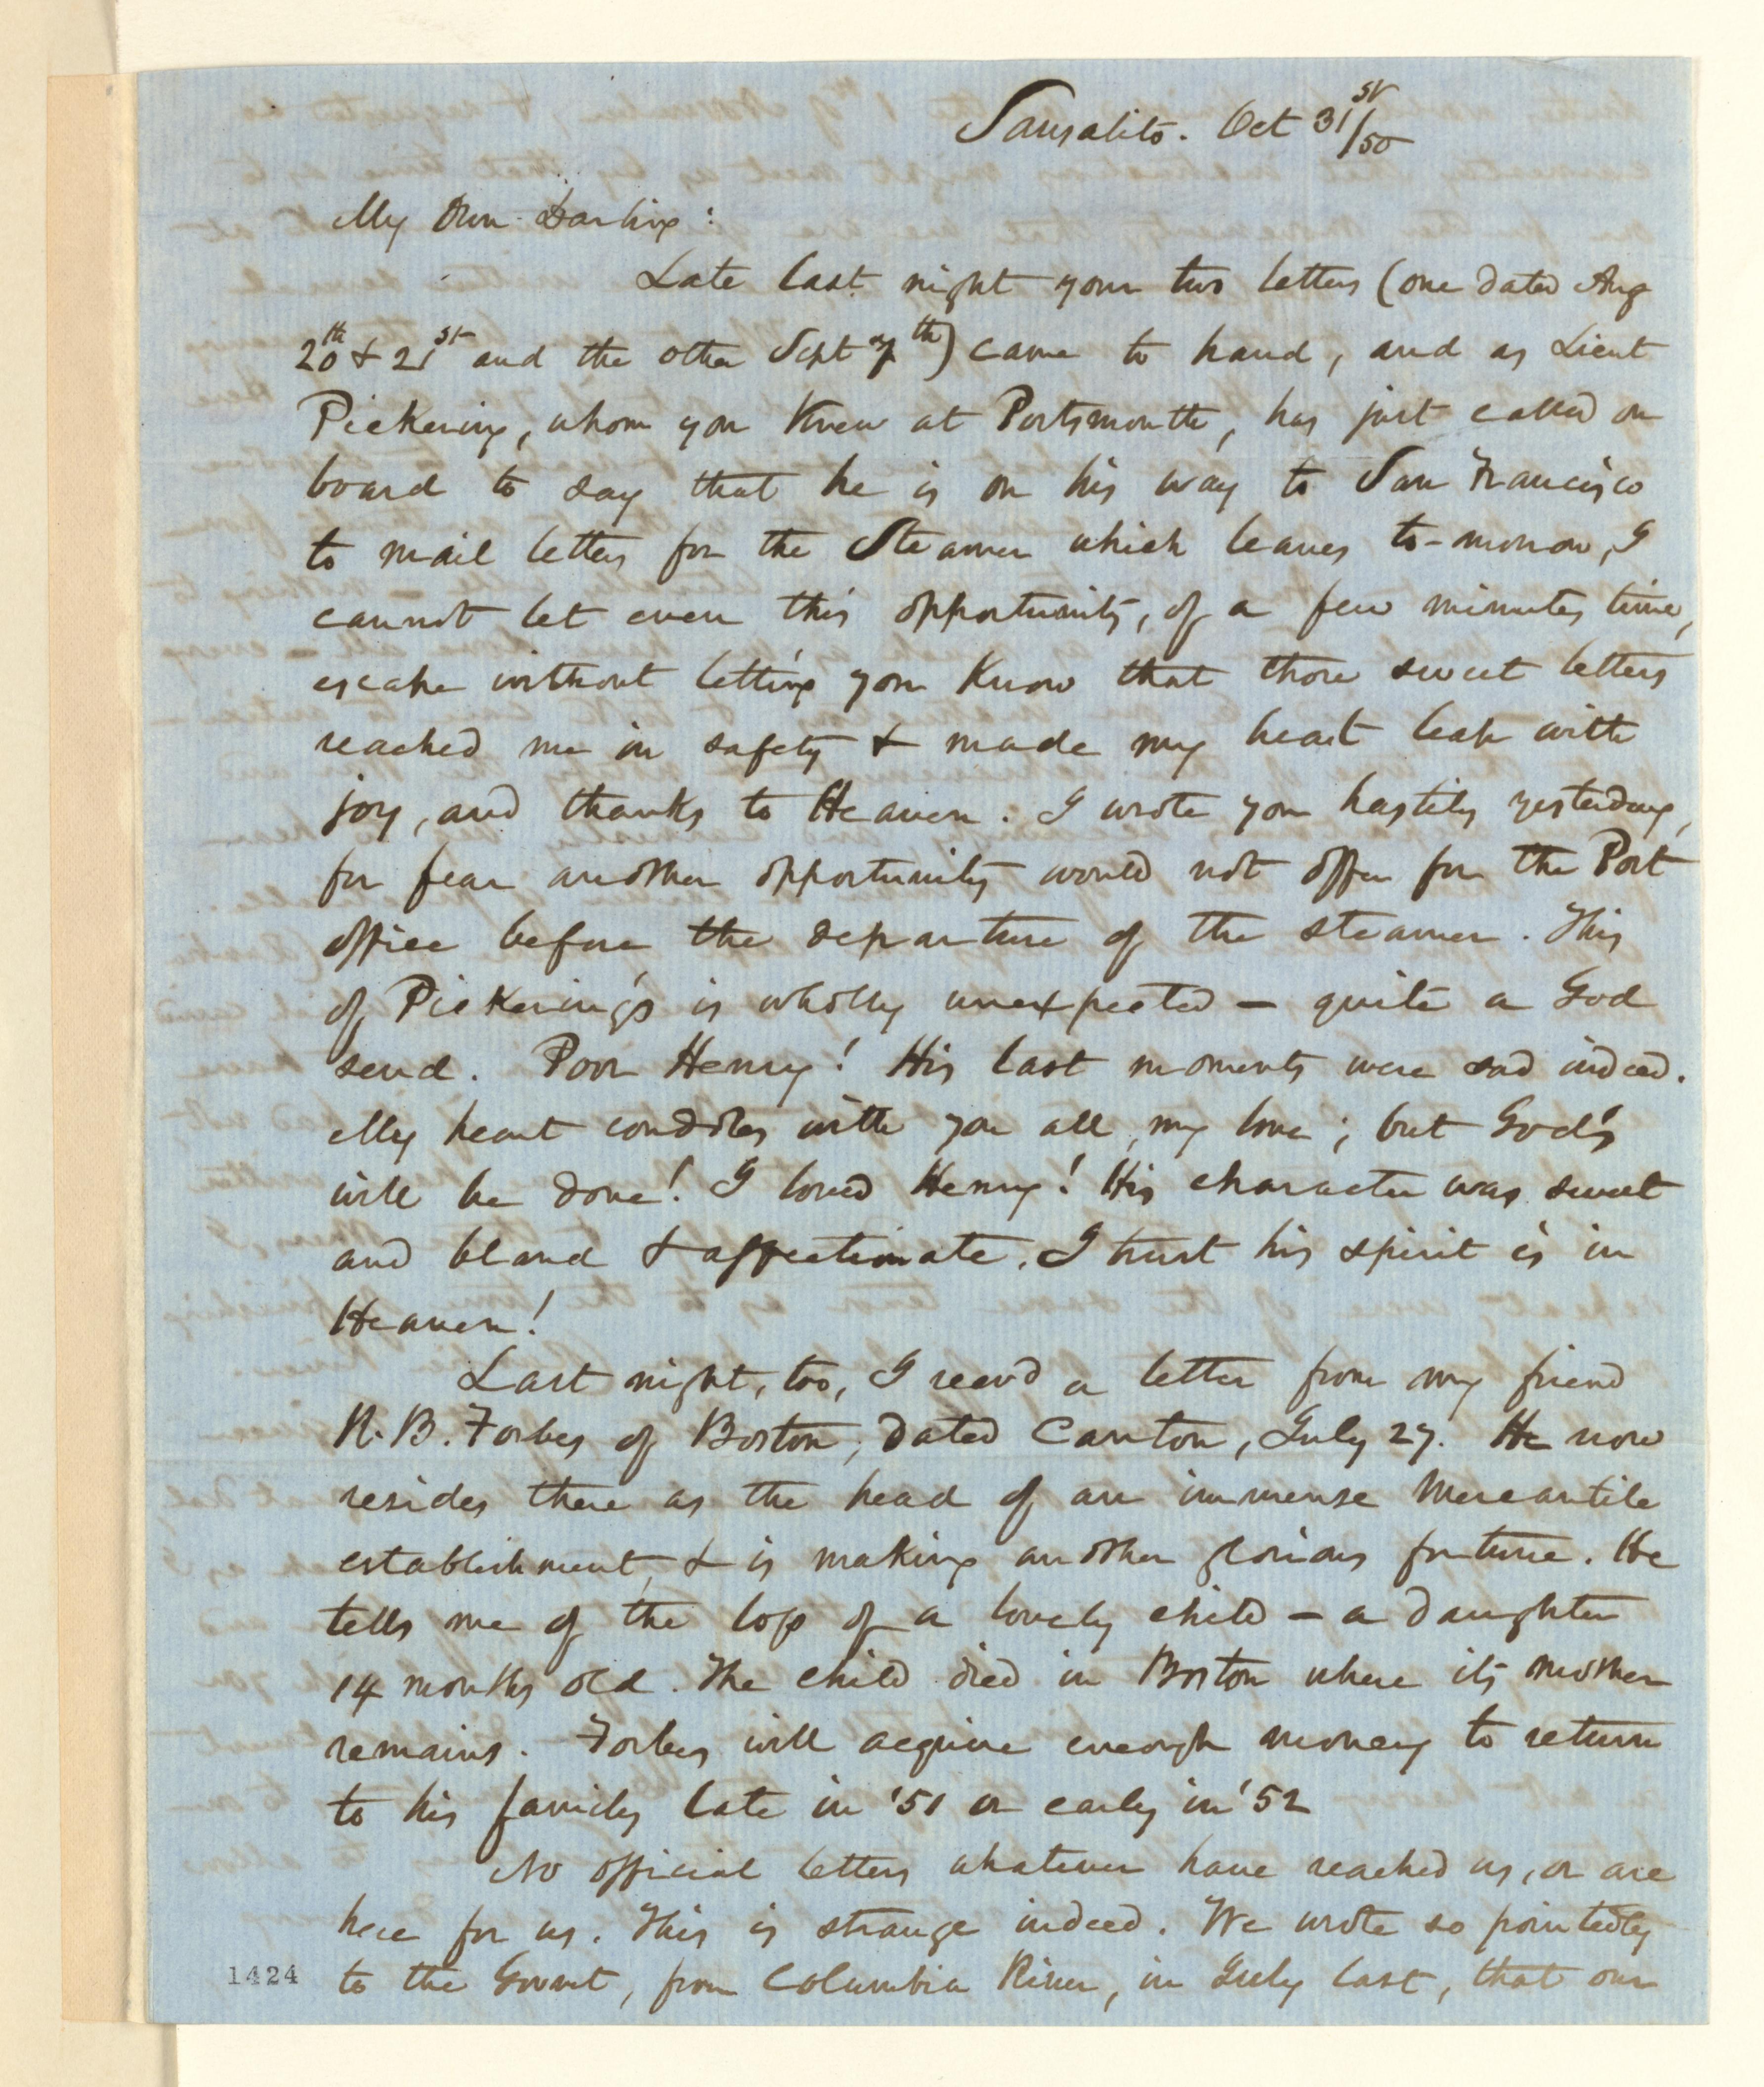 Sausalito. Oct 31st/50
My Own Darling:
Late last night your two letters (one dated Aug
20th & 21st and the other Sept 7th) came to hand, and as Lieut
Pickering, whom you knew at Portsmouth, has just called on
board to say that he is on his way to San Francisco
to mail letters for the Steamer which leaves to-morrow, I
cannot let even this opportunity, of a few minutes time,
escape without letting you know that those sweet letters
reached me in safety & made my heart leap with
joy, and thanks to Heaven. I wrote you hastily yesterday,
for fear another opportunity would not offer for the Post
office before the departure of the steamer. This
of Pickering's is wholly unexpected — quite a God
send. Poor Henry! His last moments were sad indeed.
My heart condoles with you all, my love; but God's
will be done! I loved Henry! His character was sweet
and bland & affectionate. I trust his spirit is in
Heaven!
Last night, too, I recvd a letter from my friend
R. B. Forbes of Boston, dated Canton, July 27. He now
resides there as the head of an immense Mercantile
establishment, & is making another glorious fortune. He
tells me of the loss of a lovely child — a daughter
14 months old. The child died in Boston where its mother
remains. Forbes will acquire enough money to return
to his family late in '51 or early in '52
No official letters whatever have reached us, or are
here for us. This is strange indeed. We wrote so pointedly
to the Govmt, from Columbia River, in July last, that our
1424